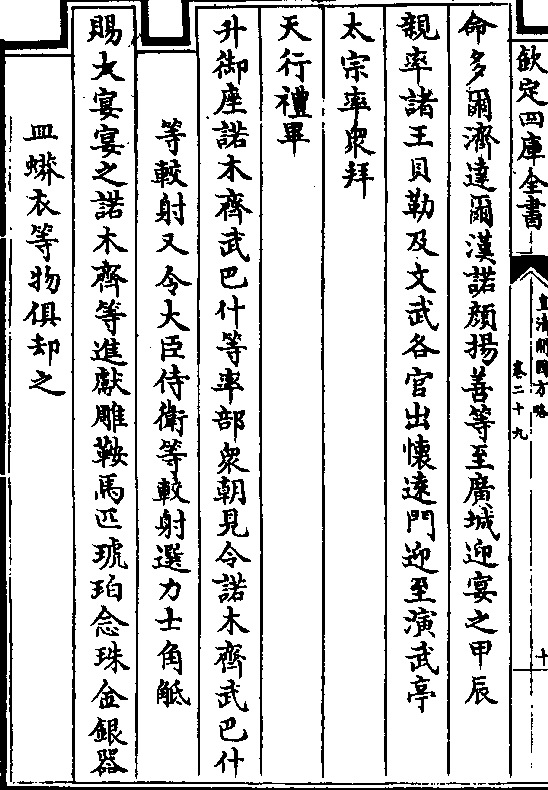 欽定四庫全書
皇清開國方略
卷二十九
十
命多爾濟達爾漢諾顏揚善等至廣城迎宴之甲辰
親率諸王貝勒及文武各官出懷遠門迎至演武亭
太宗率衆拜
天行禮畢
升御座諾木齊武巴什等率部衆朝見令諾木齊武巴什
等較射又令大臣侍衛等較射選力士角觝
賜大宴宴之諾木齊等進獻雕鞍馬匹琥珀念珠金銀器
皿蟒衣等物俱却之